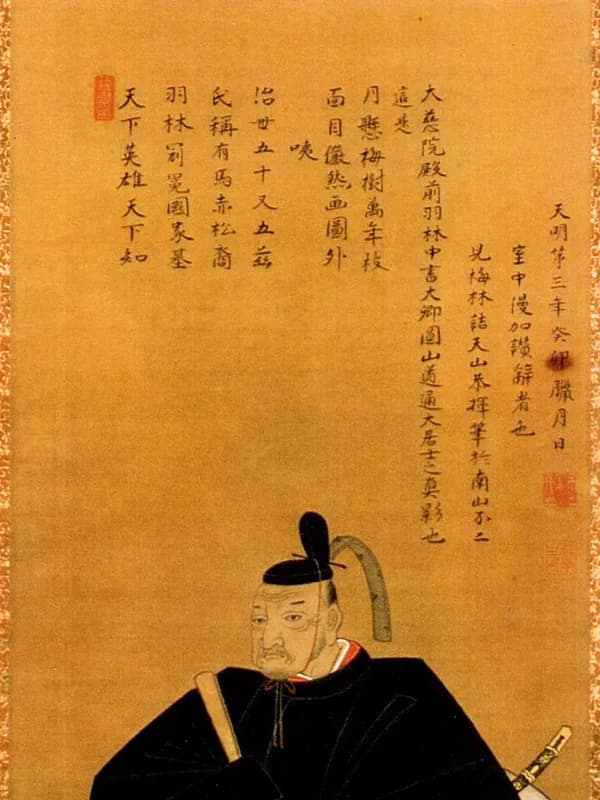 天下英雄天下知
羽林冠冕國家基
氏稱有馬赤松裔
治世五十又五茲
咦
面目儼然画圖外
月懸梅樹萬年枝
這是
大慈院殿前羽林中書大卿圓山道通大居士之真影也
見梅林詰天山恭揮筆於南山不二
室中漫加讃辭者也
天明第三年癸卯臘月日